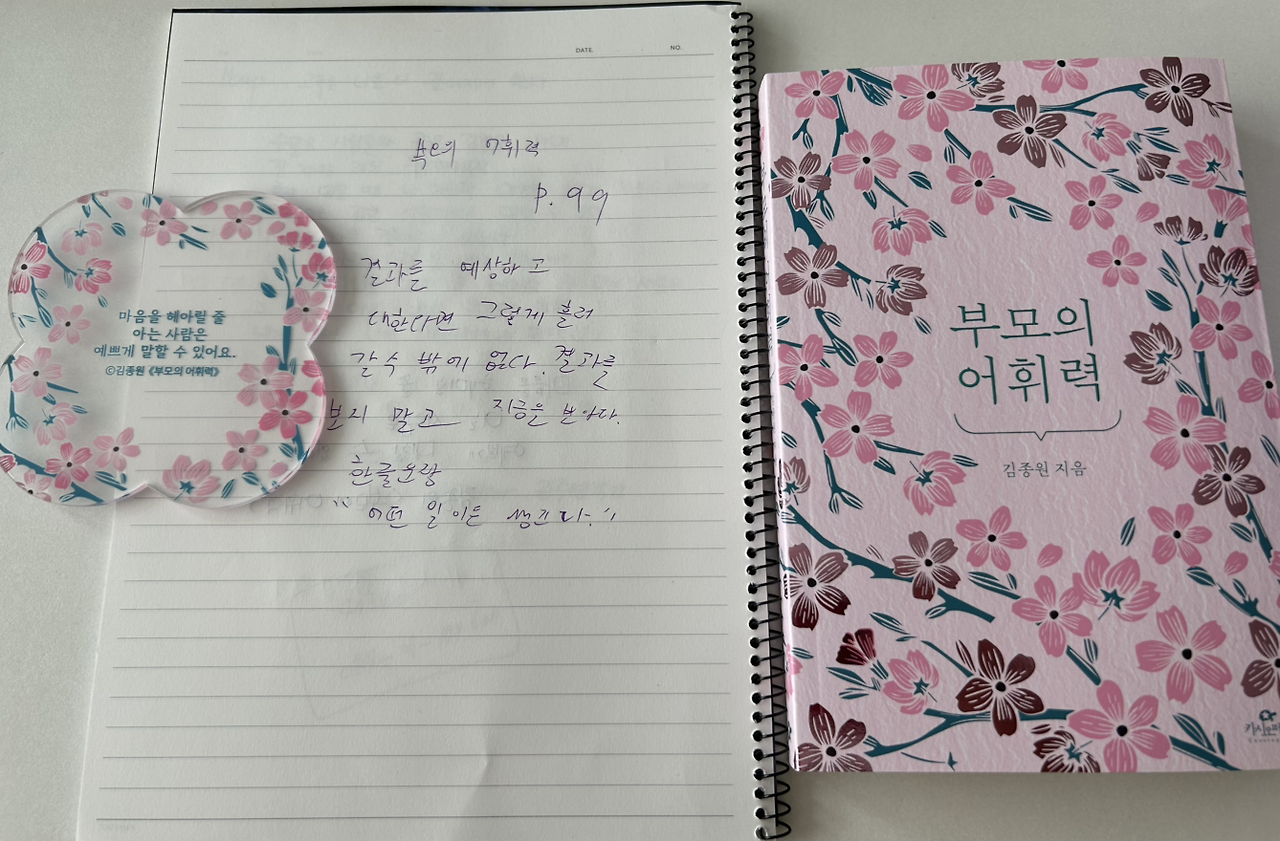 DATE.
NO.
부모의 어휘력
P. 99
결과를 예상하고
대한다면 그렇게 흘러
갈 수 밖에 없다. 결과를
보지 말고 지금을 보아라.
한글은랑
"어떤 일이든 생긴다."
마음을 헤아릴 줄
아는 사람은
예쁘게 말할 수 있어요.
©김종원 《부모의 어휘력》
부모의
어휘력
김종원 지음